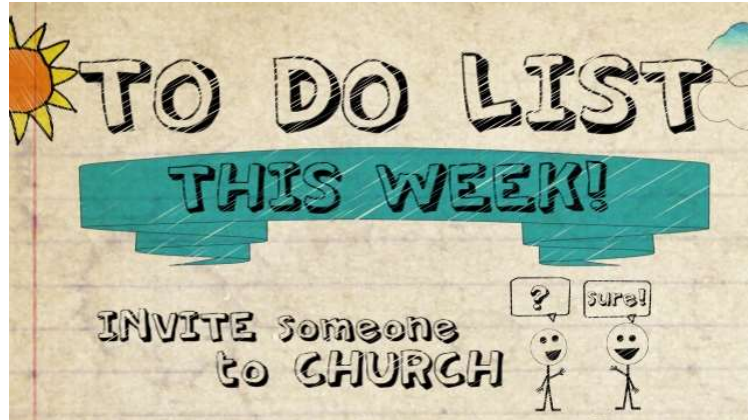 TO DO LIST
THIS WEEK!
? sure!
INVITE someone
to CHURCH